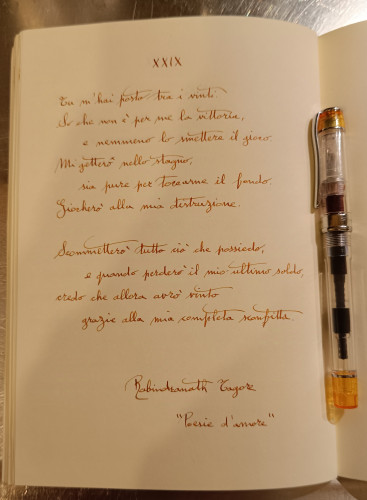 XXIX
Tu m'hai posto tra i vinti.
So che non è per me la vittoria,
e nemmeno lo smettere il gioco.
Mi getterò nello stagno,
sia pure per toccarne il fondo.
Giocherò alla mia distruzione.
Scommetterò tutto ciò che possiedo,
e quando perderò il mio ultimo soldo,
credo che allora avrò vinto
grazie alla mia completa sconfitta
Rabindranath Tagore
"Poesie d'amore"